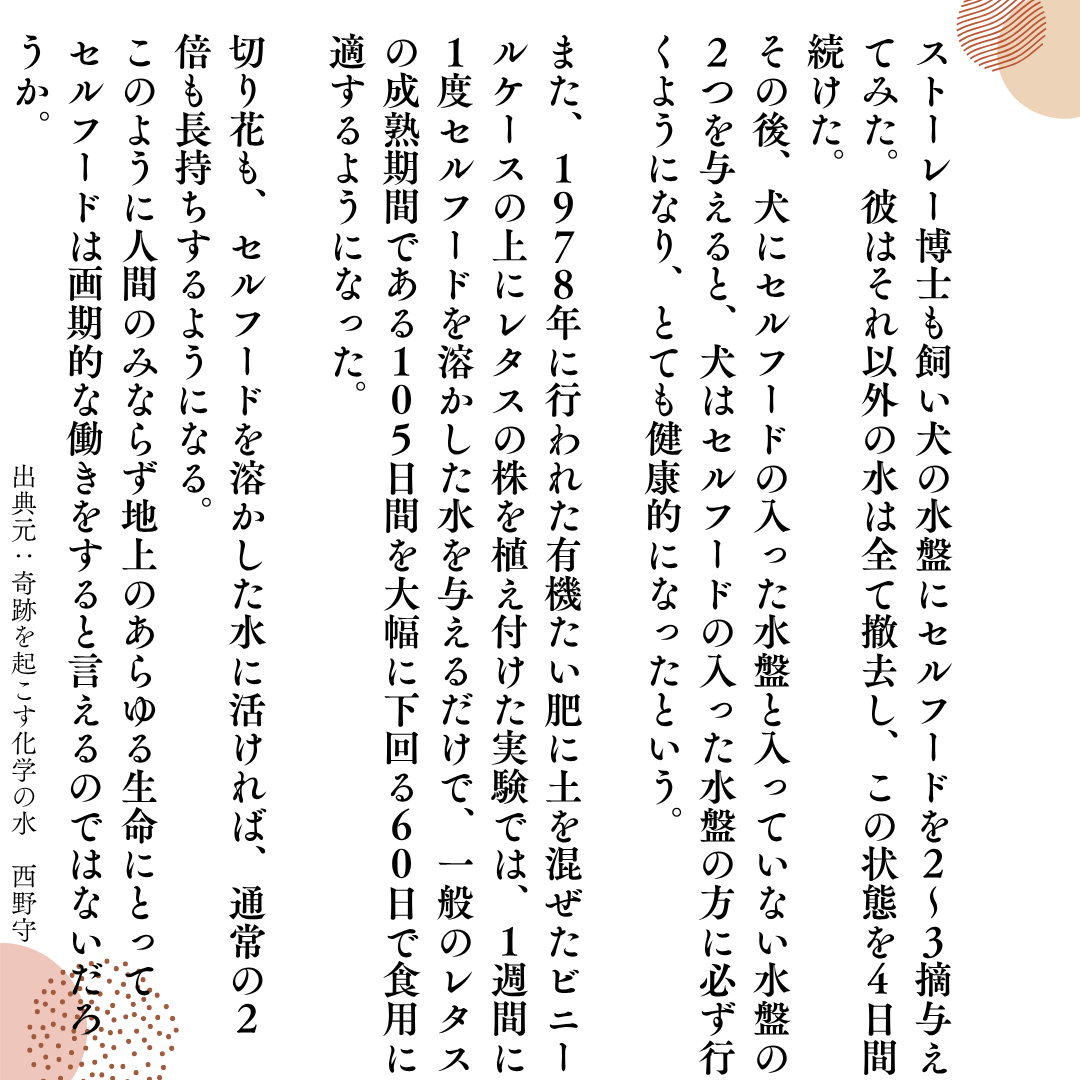 ストーレー博士も飼い犬の水盤にセルフードを2〜3摘与え
てみた。彼はそれ以外の水は全て撤去し、この状態を4日間
続けた。
その後、犬にセルフードの入った水盤と入っていない水盤の
2つを与えると、犬はセルフードの入った水盤の方に必ず行
くようになり、とても健康的になったという。
また、1978年に行われた有機たい肥に土を混ぜたビニー
ルケースの上にレタスの株を植え付けた実験では、1週間に
1度セルフードを溶かした水を与えるだけで、一般のレタス
の成熟期間である105日間を大幅に下回る60日で食用に
適するようになった。
切り花も、セルフードを溶かした水に活ければ、通常の2
倍も長持ちするようになる。
このように人間のみならず地上のあらゆる生命にとって
セルフードは画期的な働きをすると言えるのではないだろ
うか。
出典元:奇跡を起こす化学の水 西野守